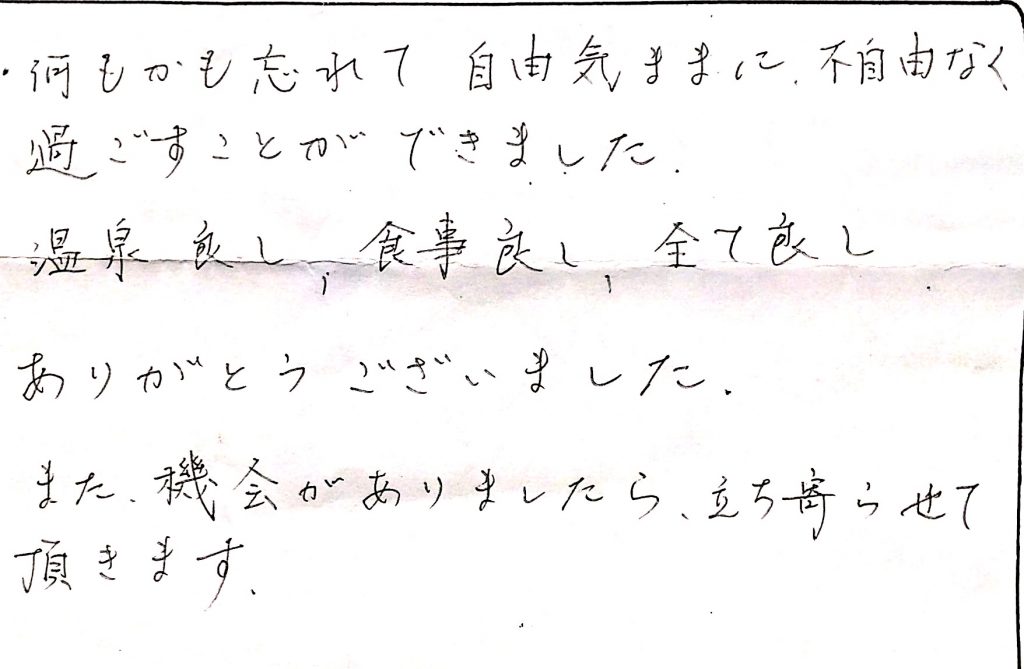 ・何もかも忘れて 自由気ままに、不自由なく
過ごすことができました.
温泉良し、食事良し、全て良し
ありがとうございました.
また、機会がありましたら、立ち寄らせて
頂きます.